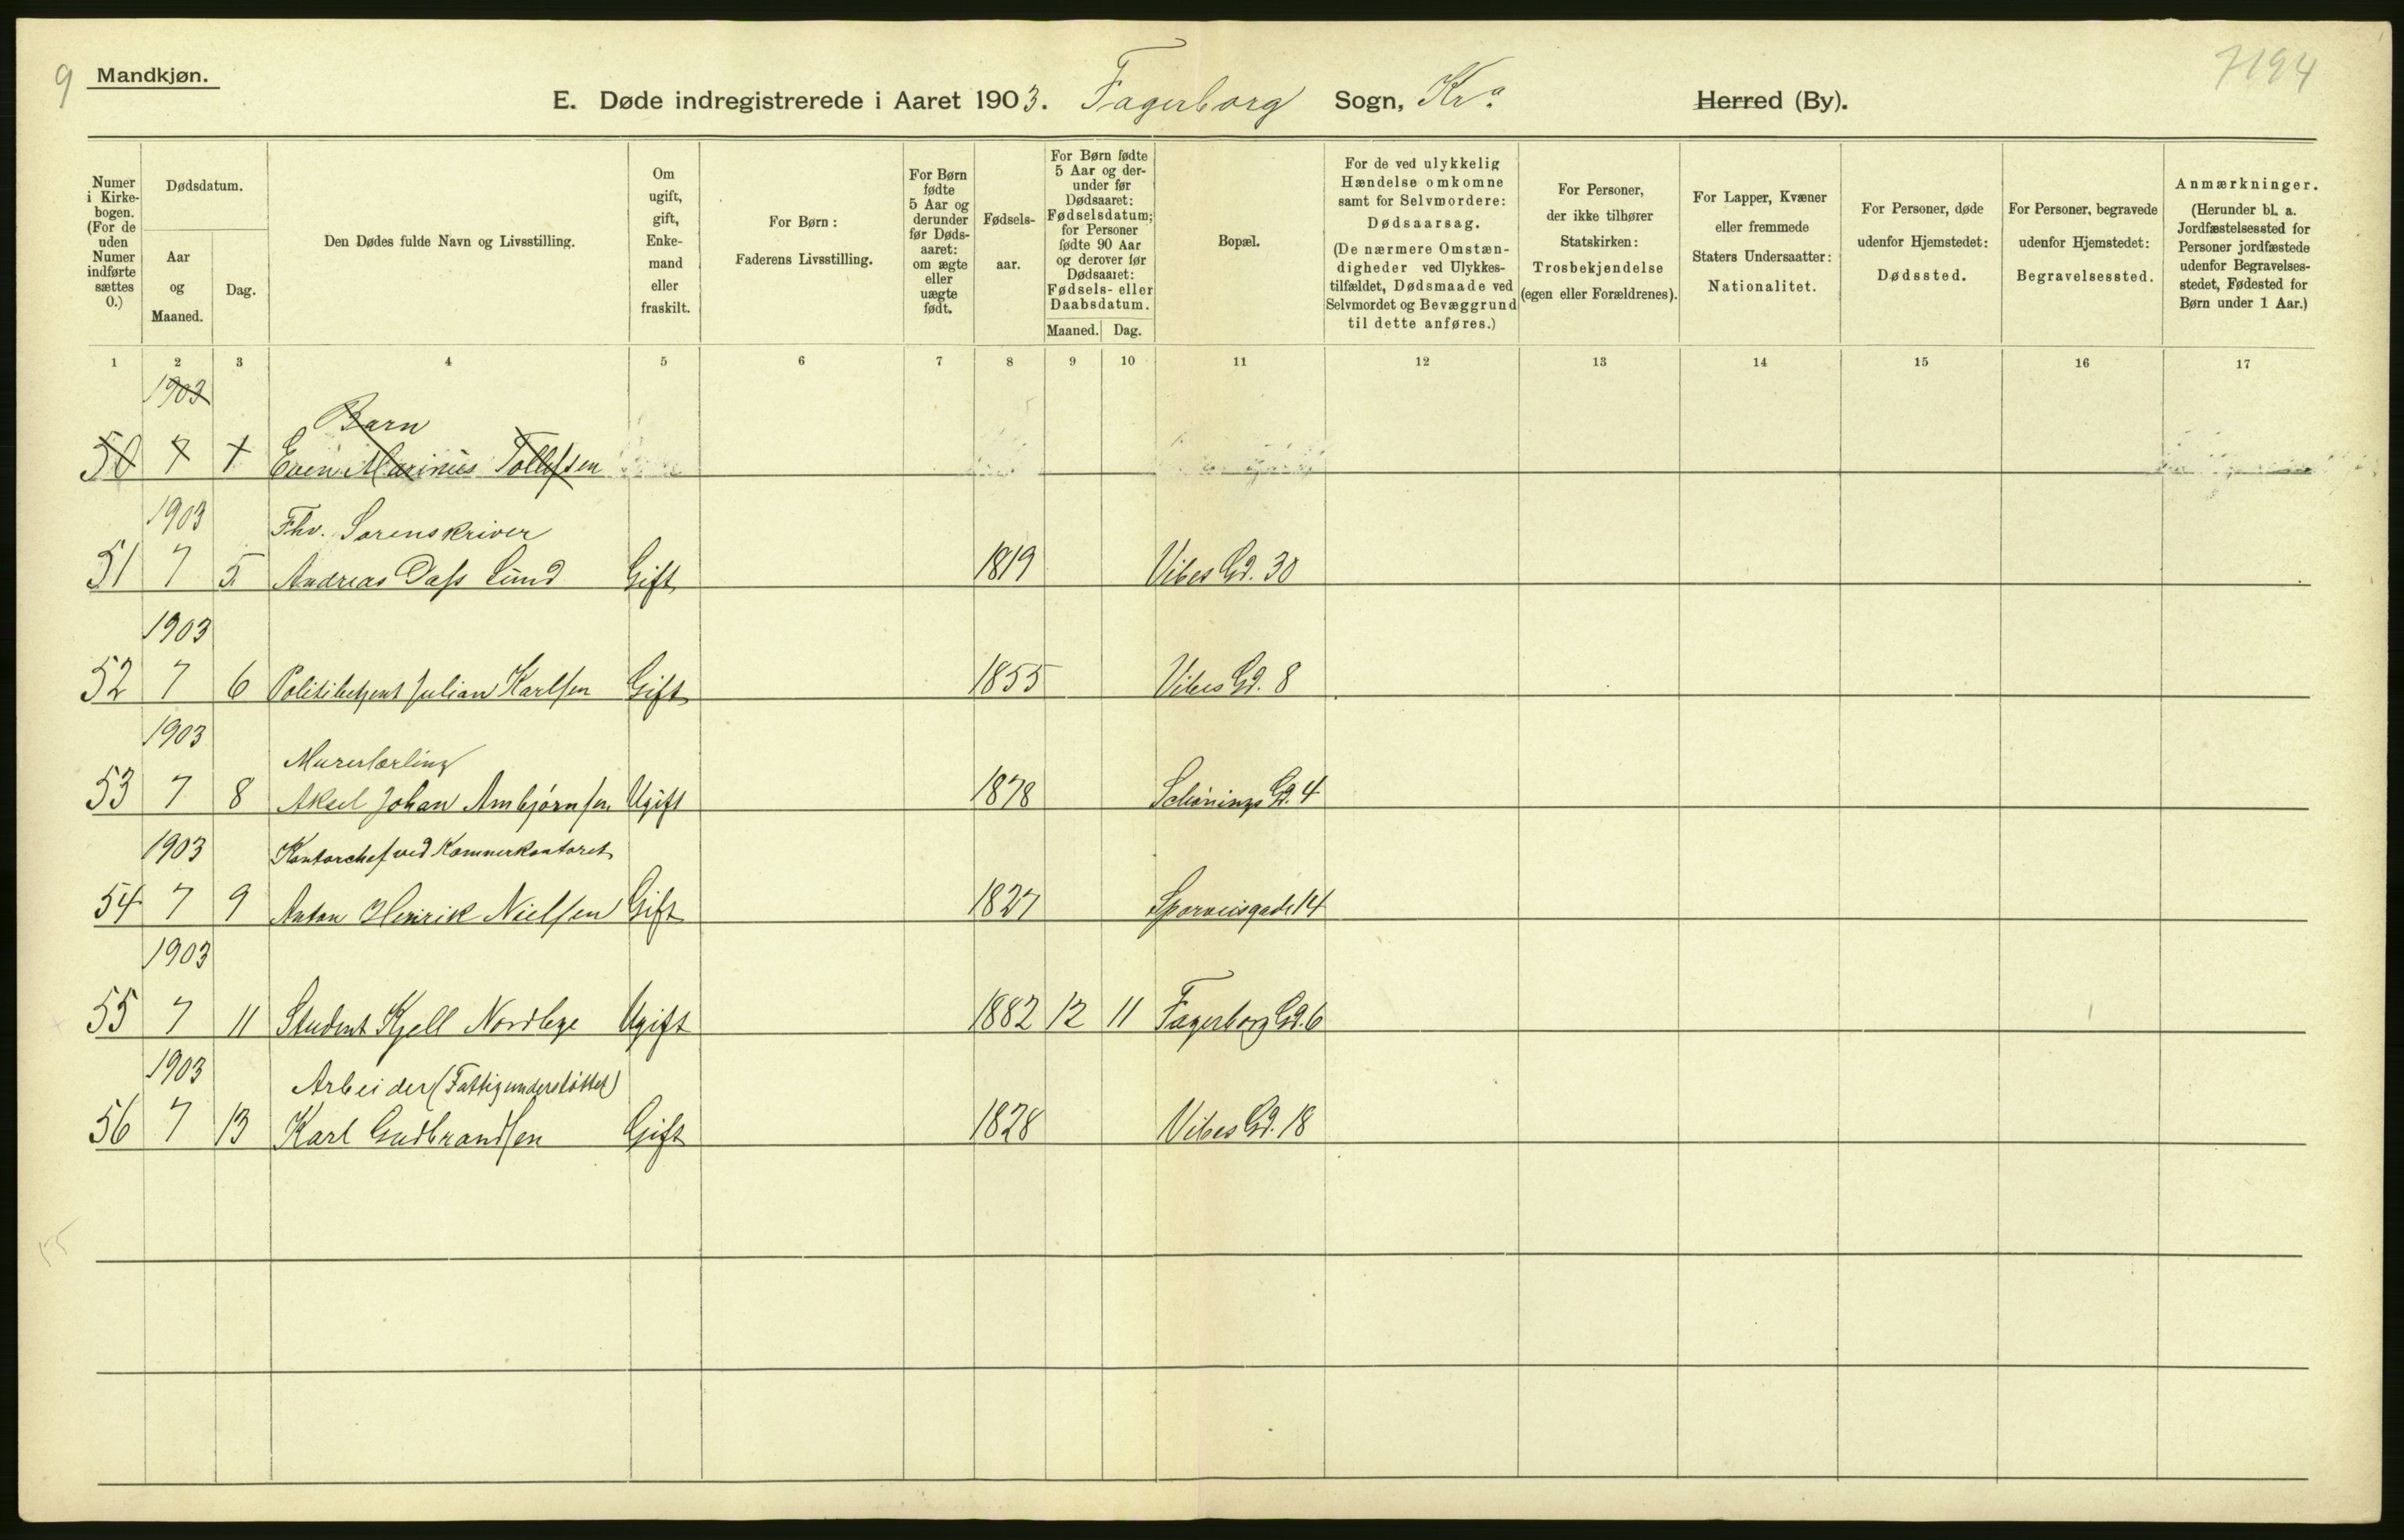 9 Mandkjøn.
7194
E. Døde indregistrerede i Aaret 1903. Fagerborg Sogn, Kra Herred (By).
Numer i Kirkebogen. (For de uden Numer indførte sættes 0.)
Dødsdatum.
Aar og Maaned.
Dag.
Den Dødes fulde Navn og Livsstilling.
Om ugift, gift, Enkemand eller fraskilt.
For Børn: Faderens Livsstilling.
For Børn fødte 5 Aar og derunder før Dødsaaret: om ægte eller uægte født.
Fødselsaar.
For Børn fødte 5 Aar og derunder før Dødsaaret: Fødselsdatum; for Personer fødte 90 Aar og derover før Dødsaaret: Fødsels- eller Daabsdatum.
Maaned. Dag.
Bopæl.
For de ved ulykkelig Hændelse omkomne samt for Selvmordere: Dødsaarsag. (De nærmere Omstændigheder ved Ulykkestilfældet, Dødsmaade ved Selvmordet og Bevæggrund til dette anføres.)
For Personer, der ikke tilhører Statskirken: Trosbekjendelse (egen eller Forældrenes).
For Lapper, Kvæner eller fremmede Staters Undersaatter: Nationalitet.
For Personer, døde udenfor Hjemstedet: Dødssted.
For Personer, begravede udenfor Hjemstedet: Begravelsessted.
Anmærkninger. (Herunder bl. a. Jordfæstelsessted for Personer jordfæstede udenfor Begravelsesstedet, Fødested for Børn under 1 Aar.)
1 2 3 4 5 6 7 8 9 10 11 12 13 14 15 16 17
1903
Barn
50 7 1 Even Marinius Tollefsen
1903 Fhv. Sorenskriver
51 7 5 Andreas Dass Lund Gift 1819 Vibes Gd. 30
1903
52 7 6 Politibetjent Julian Karlsen Gift 1855 Vibes Gd. 8
1903
Murerlærling
53 7 8 Aksel Johan Ambjørnsen Ugift 1878 Schønings Gd. 4
1903 Kontorchef ved Kæmnerkontoret
54 7 9 Anton Henrik Nielsen Gift 1827 Sporveisgade 14
1903
55 7 11 Student Kjell Nordbye Ugift 1882 12 11 Fagerborg Gd. 6
1903 Arbeider (Fattigunderstøttet)
56 7 13 Karl Gudbrandsen Gift 1828 Vibes Gd. 18